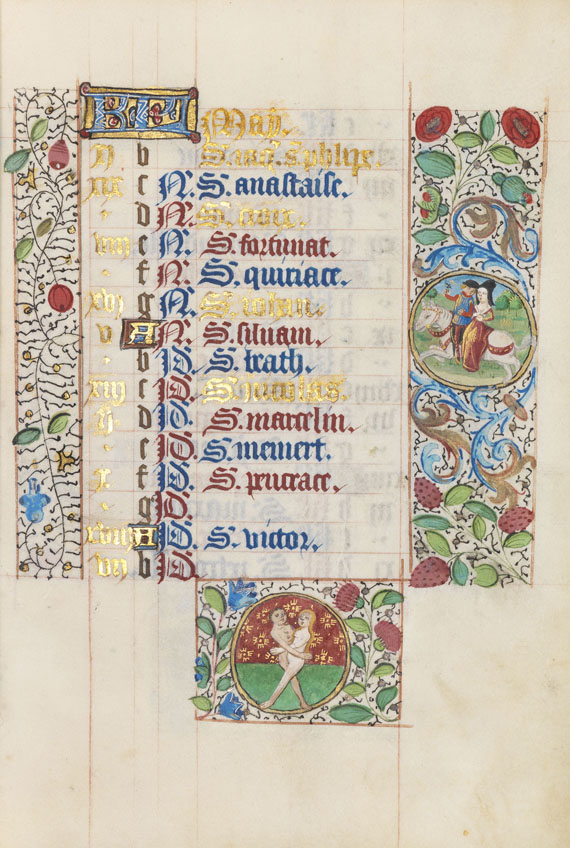 KL May.
b S. iaq. S. phlipe.
xix c N. S. anastaise.
d N. S. croix.
viii e N. S. fortunat.
f N. S. quiriace.
xvj g N. S. iehan.
v A N. S. siluain.
b Id. S. beath.
xiij c Id. S. nicolas.
ij. d Id. S. marcelin.
e Id. S. memert.
x f Id. S. pencrace.
g Id.
xviij A Id. S. victor.
vij b Id.